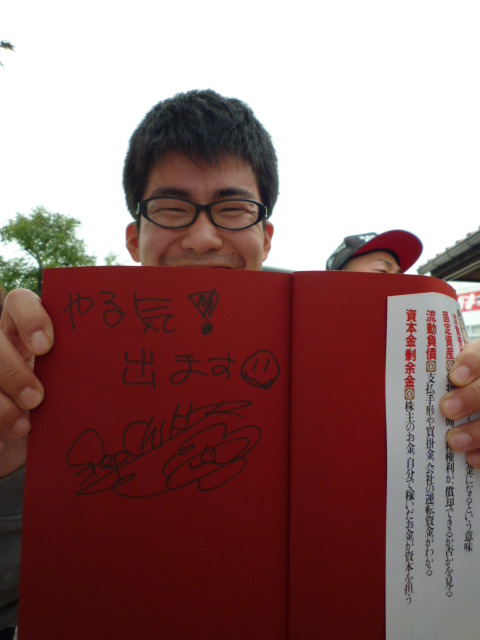 やる気!
出ます
固定資産
流動負債 支払手形や買掛金、会社の運転資金がわかる
資本金剰余金 株主のお金、自分で稼いだお金が資本を担う
金になるという意味
権利が、償却できるか否かを見る